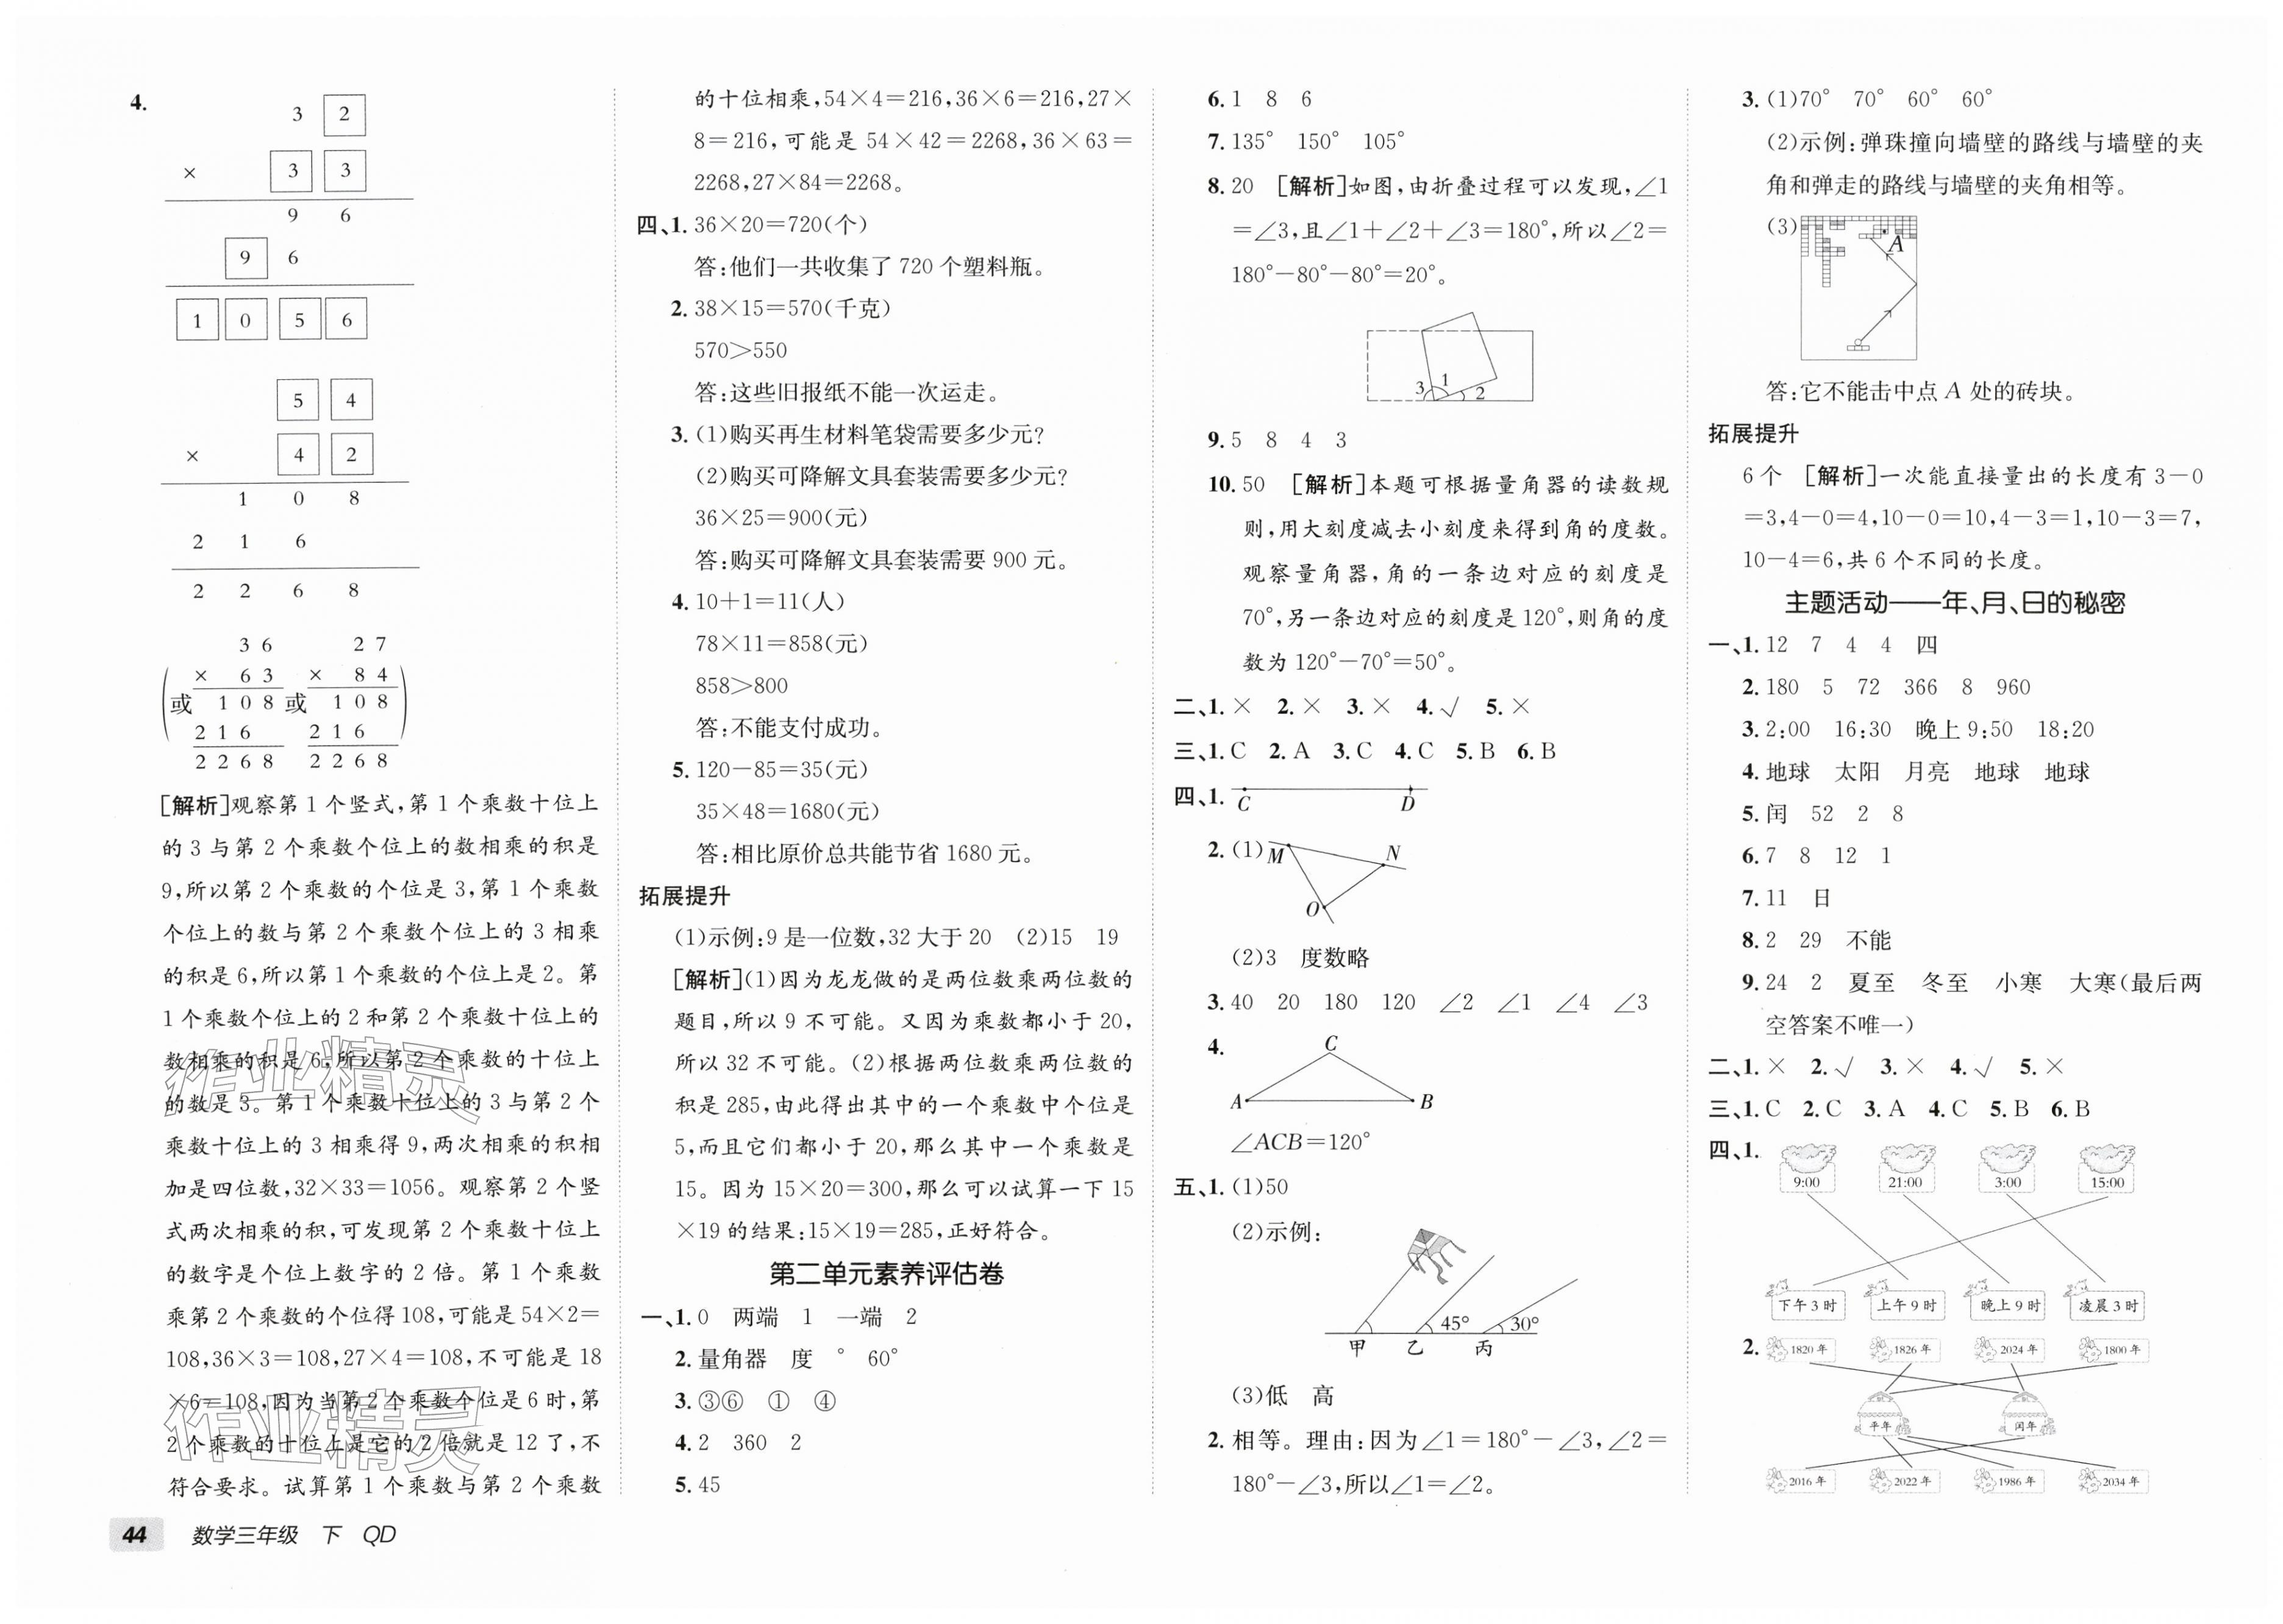 4.
3 2
× 3 3
9 6
9 6
1 0 5 6
5 4
× 4 2
1 0 8
2 1 6
2 2 6 8
3 6 2 7
× 6 3 × 8 4
或 1 0 8 或 1 0 8
2 1 6 2 1 6
2 2 6 8 2 2 6 8
[解析]观察第 1 个竖式,第 1 个乘数十位上
的 3 与第 2 个乘数个位上的数相乘的积是
9,所以第 2 个乘数的个位是 3,第 1 个乘数
个位上的数与第 2 个乘数个位上的 3 相乘
的积是 6,所以第 1 个乘数的个位上是 2。第
1 个乘数个位上的 2 和第 2 个乘数十位上的
数相乘的积是 6,所以第 2 个乘数的十位上
的数是 3。第 1 个乘数十位上的 3 与第 2 个
乘数十位上的 3 相乘得 9,两次相乘的积相
加是四位数,32×33=1056。观察第 2 个竖
式两次相乘的积,可发现第 2 个乘数十位上
的数字是个位上数字的 2 倍。第 1 个乘数
乘第 2 个乘数的个位得 108,可能是 54×2=
108,36×3=108,27×4=108,不可能是 18
×6=108,因为当第 2 个乘数个位是 6 时,第
2 个乘数的十位上是它的 2 倍就是 12 了,不
符合要求。试算第 1 个乘数与第 2 个乘数
作业精灵
作业精灵
44 数学三年级 下 QD
的十位相乘,54×4=216,36×6=216,27×
8=216,可能是 54×42=2268,36×63=
2268,27×84=2268。
四、1. 36×20=720(个)
答:他们一共收集了 720 个塑料瓶。
2. 38×15=570(千克)
570>550
答:这些旧报纸不能一次运走。
3. (1)购买再生材料笔袋需要多少元?
(2)购买可降解文具套装需要多少元?
36×25=900(元)
答:购买可降解文具套装需要 900 元。
4. 10+1=11(人)
78×11=858(元)
858>800
答:不能支付成功。
5. 120-85=35(元)
35×48=1680(元)
答:相比原价总共能节省 1680 元。
拓展提升
(1)示例:9 是一位数,32 大于 20 (2)15 19
[解析](1)因为龙龙做的是两位数乘两位数的
题目,所以 9 不可能。又因为乘数都小于 20,
所以 32 不可能。(2)根据两位数乘两位数的
积是 285,由此得出其中的一个乘数中个位是
5,而且它们都小于 20,那么其中一个乘数是
15。因为 15×20=300,那么可以试算一下 15
×19 的结果:15×19=285,正好符合。
第二单元素养评估卷
一、1. 0 两端 1 一端 2
2. 量角器 度 ° 60°
3. ③⑥ ① ④
4. 2 360 2
5. 45
6. 1 8 6
7. 135° 150° 105°
8. 20 [解析]如图,由折叠过程可以发现,∠1
=∠3,且∠1+∠2+∠3=180°,所以∠2=
180°-80°-80°=20°。
3 1 2
9. 5 8 4 3
10. 50 [解析]本题可根据量角器的读数规
则,用大刻度减去小刻度来得到角的度数。
观察量角器,角的一条边对应的刻度是
70°,另一条边对应的刻度是 120°,则角的度
数为 120°-70°=50°。
二、1. × 2. × 3. × 4. √ 5. ×
三、1. C 2. A 3. C 4. C 5. B 6. B
四、1. C D
2. (1) M N
O
(2)3 度数略
3. 40 20 180 120 ∠2 ∠1 ∠4 ∠3
4. C
A B
∠ACB=120°
五、1. (1)50
(2)示例:
45° 30°
甲 乙 丙
(3)低 高
2. 相等。理由:因为∠1=180°-∠3,∠2=
180°-∠3,所以∠1=∠2。
3. (1)70° 70° 60° 60°
(2)示例:弹珠撞向墙壁的路线与墙壁的夹
角和弹走的路线与墙壁的夹角相等。
(3) A
答:它不能击中点 A 处的砖块。
拓展提升
6 个 [解析]一次能直接量出的长度有 3-0
=3,4-0=4,10-0=10,4-3=1,10-3=7,
10-4=6,共 6 个不同的长度。
主题活动——年、月、日的秘密
一、1. 12 7 4 4 四
2. 180 5 72 366 8 960
3. 2:00 16:30 晚上 9:50 18:20
4. 地球 太阳 月亮 地球 地球
5. 闰 52 2 8
6. 7 8 12 1
7. 11 日
8. 2 29 不能
9. 24 2 夏至 冬至 小寒 大寒(最后两
空答案不唯一)
二、1. × 2. √ 3. × 4. √ 5. ×
三、1. C 2. C 3. A 4. C 5. B 6. B
四、1.
9:00 21:00 3:00 15:00
下午 3 时 上午 9 时 晚上 9 时 凌晨 3 时
2. 1820 年 1826 年 2024 年 1800 年
平年 闰年
2016 年 2022 年 1986 年 2034 年